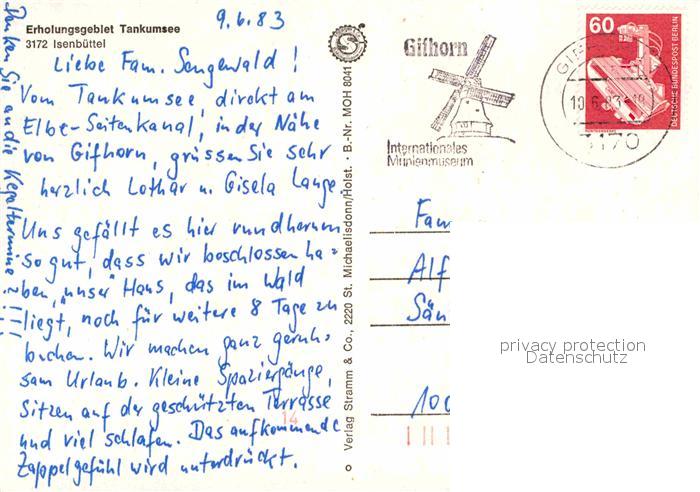 Erholungsgebiet Tankumsee
3172 Isenbüttel
9.6.83
Liebe Fam. Sengewald!
Vom Tankumsee, direkt am
Elbe-Seitenkanal, in der Nähe
von Gifhorn, grüssen Sie sehr
herzlich Lothar u. Gisela Lange
Uns gefällt es hier rundherum
so gut, dass wir beschlossen ha-
ben, "unser" Haus, das im Wald
liegt, noch für weitere 8 Tage zu
buchen. Wir machen ganz geruh-
sam Urlaub. Kleine Spaziergänge,
Sitzen auf der geschützten Terrasse
und viel schlafen. Das aufkommende
Zappelgefühl wird unterdrückt.
Denken Sie an die Kegeltermine?!!!!
14
Verlag Stramm & Co., 2220 St. Michaelisdonn/Holst. · B.-Nr. MOH 8041
Gifhorn
Internationales
Mühlenmuseum
GIF
10.6.83
3170
60
DEUTSCHE BUNDESPOST BERLIN
Fam
Alf
Sän
100
privacy protection
Datenschutz